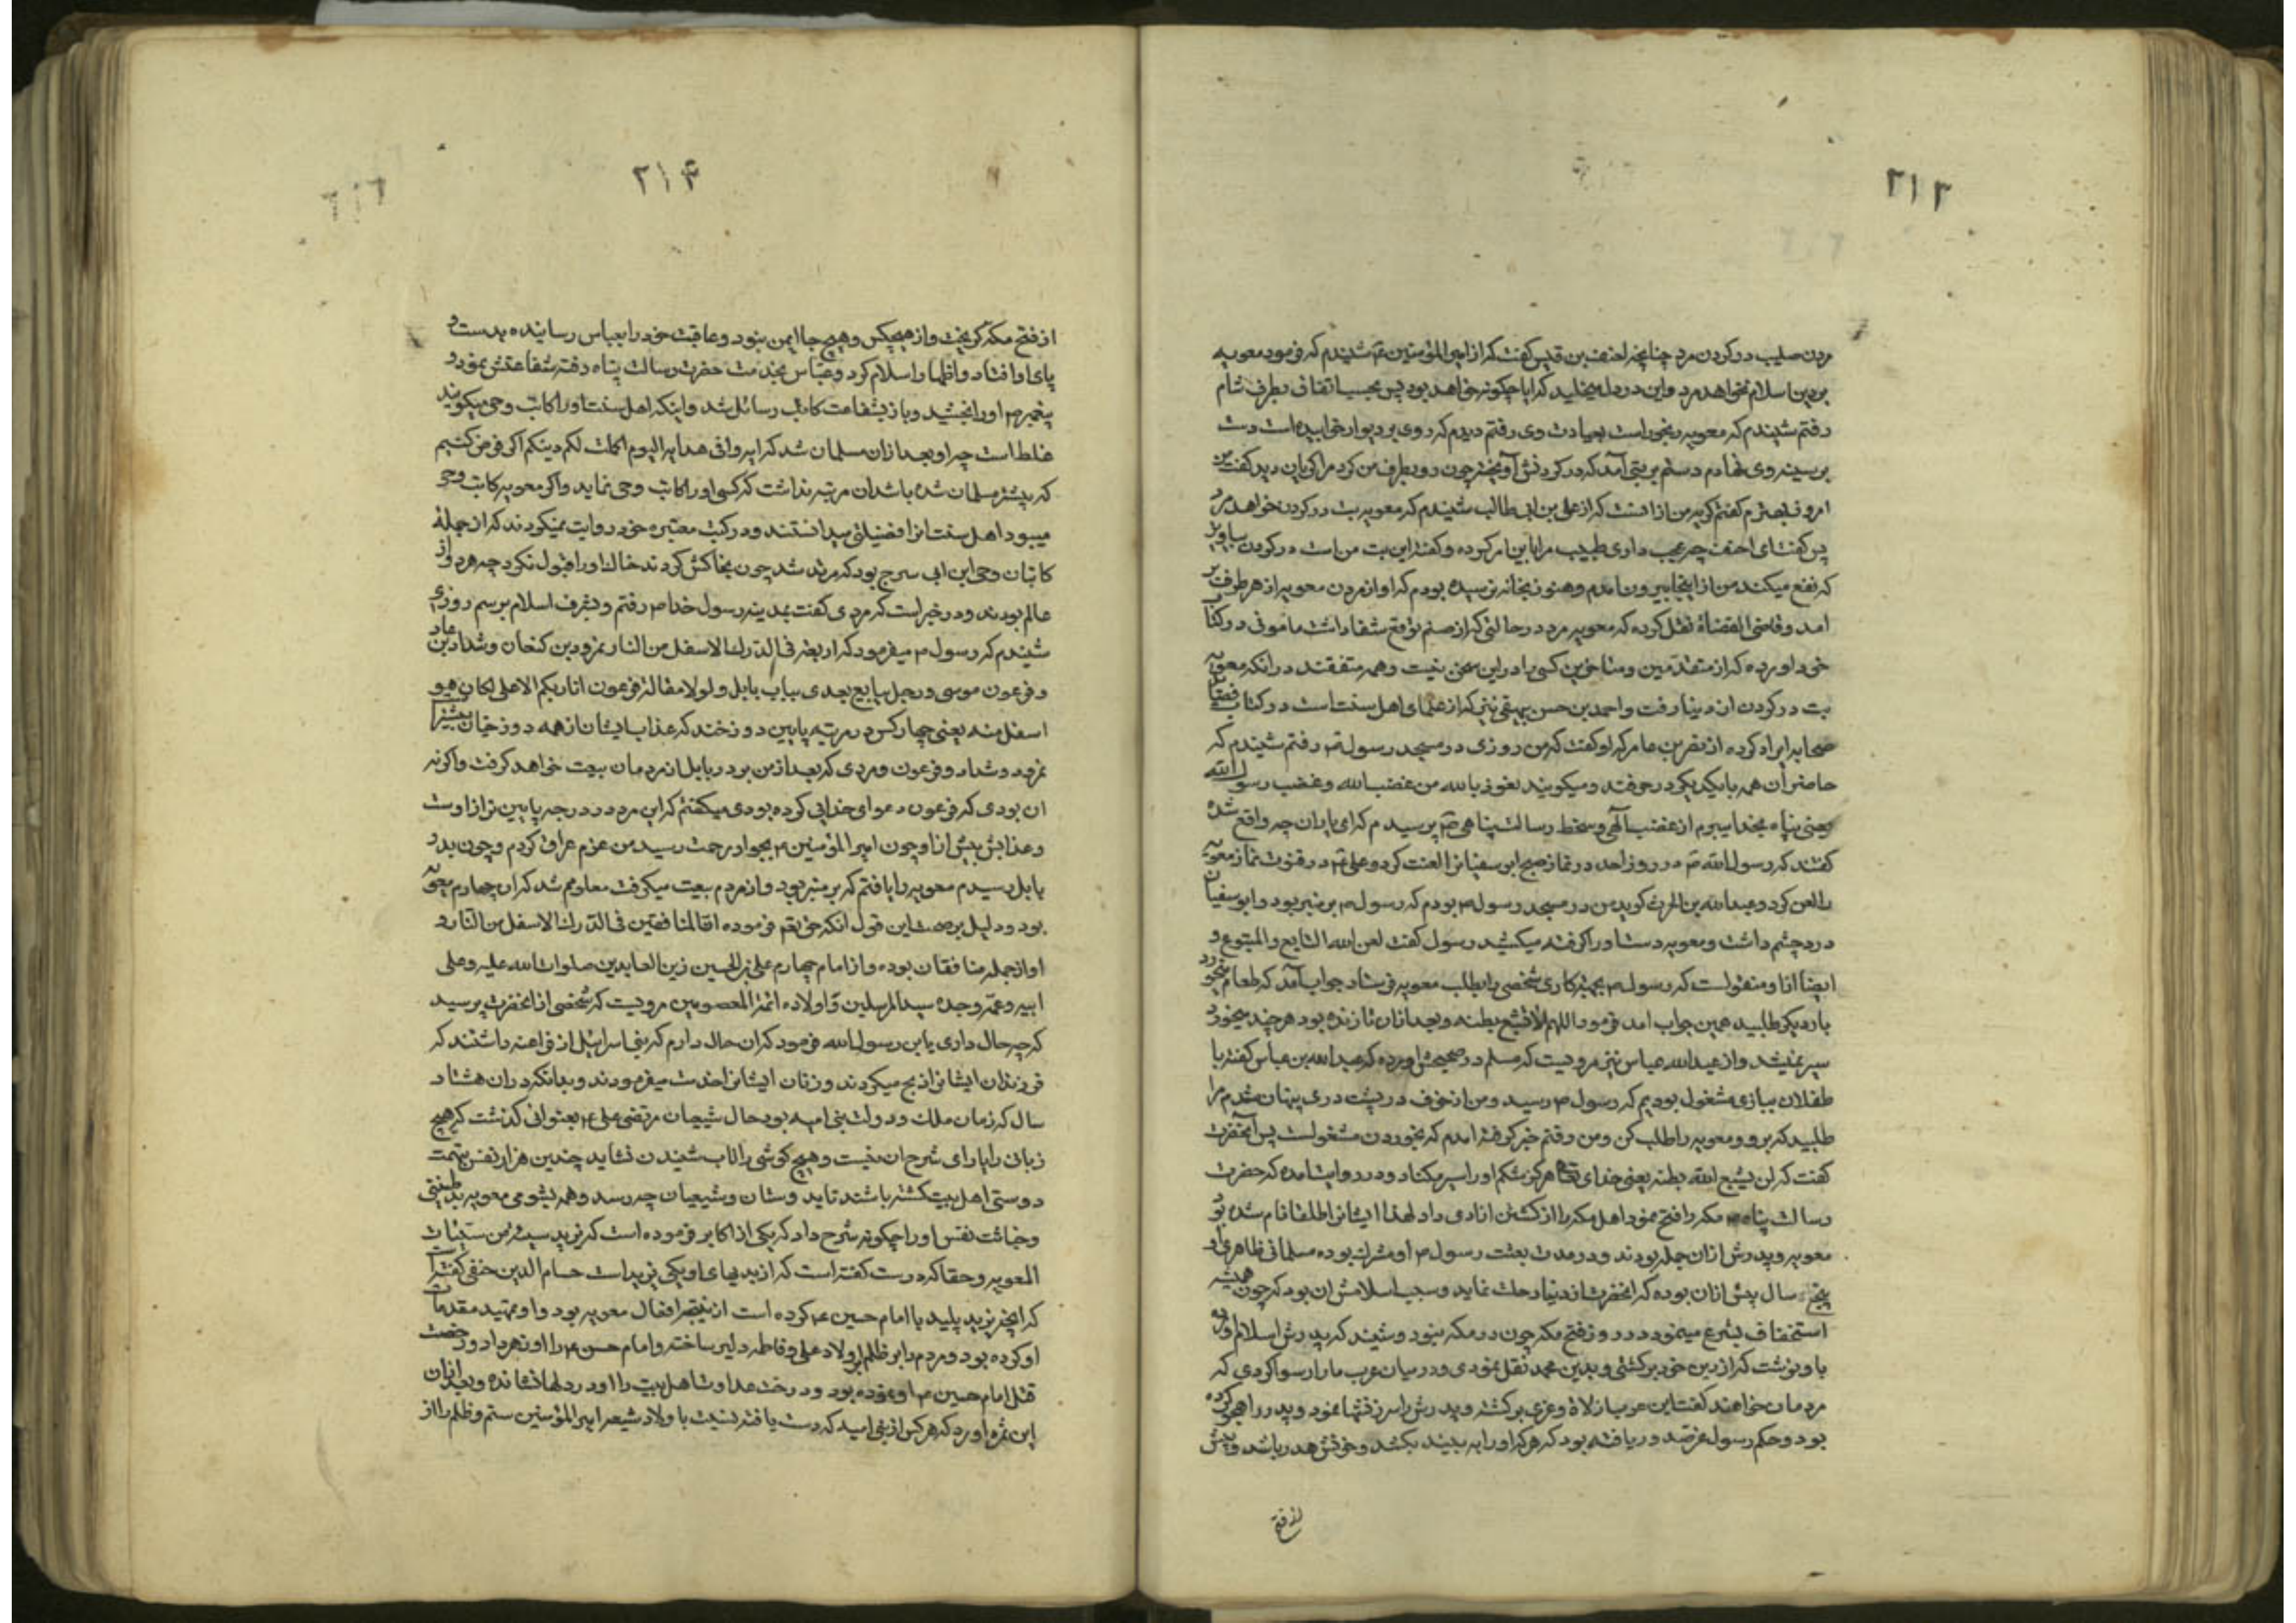 ۲۱۳
مردن صلیب در کردن مرد چنانچه احنف بن قیس گفت که از امیر المؤمنین ع شنیدم که فرمود معویه
بر دین اسلام نخواهد مرد و این در دل میخلید که ایا چگونه خواهد بود پس بحسب اتفاق بطرف شام
رفتم شنیدم که معویه رنجور است بعیادت وی رفتم دیدم که روی بر دیوار خوابیده است دست
بر سینه وی نهادم دستم بر بتی آمد که در کردنش آویخته چون رو بطرف من کرد مرا کریان دید گفت من
امروز بهترم گفتم کریه من از انست که از علی بن ابی طالب شنیدم که معویه بت در کردن خواهد مرد
پس گفت ای احنف چه عجب داری طبیب مرا باین امر کرده و گفته این بت من است در کردن
که نفع میکند من از اینجا بیرون آمدم و هنوز بخانه نرسیده بودم که اواز مردن معویه از هر طرف بر
امد و قاضی القضاة نقل کرده که معویه مرد در حالتی که از صنم توقع شفا داشت مامونی در کتاب
خود آورده که از متقدمین و متاخرین کسی را در این سخن نیست و همه متفقند در انکه معویه
بت در کردن از دنیا رفت و احمد بن حسن بیهقی نیز که از علمای اهل سنت است در کتاب فضایل
صحابه ایراد کرده از نصر بن عامر که او گفت که من روزی در مسجد رسول ص رفتم شنیدم که
حاضران همه با یکدیگر در حرفند و میکویند نعوذ بالله من غضب الله و غضب رسول الله
یعنی پناه بخدا میبرم از غضب آلهی و سخط رسالت پناهی ص پرسیدم که ای یاران چه واقع شده
گفتند که رسول الله ص در روز احد در نماز صبح ابو سفیان را لعنت کرد و علی ع در قنوت نماز معویه
را لعن کرد و عبد الله بن الحرث کوید من در مسجد رسول ص بودم که رسول ص بر منبر بود و ابو سفیان
درد چشم داشت و معویه دست او را کرفته میکشید رسول گفت لعن الله التابع و المتبوع و
ایضا از او منقولست که رسول ص بجهة کاری شخصی را بطلب معویه فرستاد جواب آمد که طعام میخورد
بار دیکر طلبید همین جواب امد فرمود اللهم لا تشبع بطنه و بعد از ان تا زنده بود هر چند میخورد
سیر نمیشد و از عبد الله عباس نیز مرویست که مسلم در صحیحش اورده که عبد الله بن عباس گفته با
طفلان ببازی مشغول بودیم که رسول ص رسید و من از خوف در پشت دری پنهان شدم مرا
طلبید که برو و معویه را طلب کن و من رفتم خبر کرفته امدم که بخوردن مشغولست پس آنحضرت
گفت که لن یشبع الله بطنه یعنی خدای تعالی هرکز شکم او را سیر مکناد و در روایت آمده که حضرت
رسالت پناه ص مکه را فتح نمود اهل مکه را از کشتن ازادی داد لهذا ایشانرا طلقا نام شده بود
معویه و پدرش از ان جمله بودند و در مدت بعثت رسول ص او مشرک بوده مسلمانی ظاهری او
پنج سال پیش ازان بوده که انحضرت از دنیا رحلت نماید و سبب اسلامش ان بود که چون همیشه
استخفاف بشرع مینمود در روز فتح مکه چون در مکه نبود و شنید که پدرش اسلام
باو نوشت که از دین خود برکشتی و بدین محمد نقل نمودی و در میان عرب ما را رسوا کردی که
مردمان خواهند گفت این عرب از لاة و عزی برکشته و پدرش را سرزنشها نمود و پدر را هجو کرده
بود و حکم رسول عز صدور یافته بود که هر که او را به بیند بکشد و خونش هدر باشد و پیش
از فتح
۲۱۴
از فتح مکه کریخت و از هیچکس و هیچ جا ایمن نبود و عاقبت خود را بعباس رسانیده بدست و
پای او افتاد و اظهار اسلام کرد و عباس بخدمت حضرت رسالت پناه رفته شفاعتش نمود و
پیغمبر ص او را بخشید و باز بشفاعت کاتب رسائل شد و اینکه اهل سنت او را کاتب وحی میکویند
غلط است چه او بعد از ان مسلمان شد که ایه وافی هدایه الیوم اکملت لکم دینکم اکر فرض کنیم
که پیشتر مسلمان شده باشد ان مرتبه نداشت که کسی او را کاتب وحی نماید و اکر معویه کاتب وحی
میبود اهل سنت انرا فضیلتی میدانستند و در کتب معتبره خود روایت میکردند که از جملهٔ
کاتبان وحی ابن ابی سرح بود که مرتد شد چون بخاکش کردند خاک او را قبول نکرد چه هر دو از
عالم بودند و در خبر است که مردی گفت بمدینه رسول خدا ص رفتم و بشرف اسلام برسم روزی
شنیدم که رسول ص میفرمود که اربعة فی الدرک الاسفل من النار نمرود بن کنعان و شداد بن عاد
و فرعون موسی و رجل یبایع بعدی بباب بابل و لولا مقالة فرعون انا ربکم الاعلی لکان هو
اسفل منه یعنی چهار کس در مرتبه پایین دوزخند که عذاب ایشان از همه دوزخیان بیشتر است
نمرود و شداد و فرعون و مردی که بعد از من بود در بابل از مردمان بیعت خواهد کرفت و اکر نه
ان بودی که فرعون دعوای خدایی کرده بودی میکفتم که این مرد در درجه پایین تر از اوست
و عذابش بیش از او چون امیر المؤمنین ع بجوار رحمت رسید من عزم عراق کردم و چون بدر
بابل رسیدم معویه را یافتم که بر منبر بود و از مردم بیعت میکرفت معلومم شد که ان چهارم معویه
بود و دلیل بر صحت این قول انکه حق تعالی فرموده ان المنافقین فی الدرک الاسفل من النار و
او از جمله منافقان بوده و از امام چهارم علی بن الحسین زین العابدین صلوات الله علیه و علی
ابیه و عمه و جده سید المرسلین و اولاده ائمة المعصومین مرویست که شخصی از انحضرت پرسید
که چه حال داری یا بن رسول الله فرمود که ان حال دارم که بنی اسرائیل از فراعنه داشتند که
فرزندان ایشانرا ذبح میکردند و زنان ایشانرا خدمت میفرمودند و بدانکه در ان هشتاد
سال که زمان ملک و دولت بنی امیه بود حال شیعیان مرتضی علی ع بعنوانی کذشت که هیچ
زبان را یارای شرح ان نیست و هیچ کوشی را تاب شنیدن نشاید چندین هزار نفس بتهمت
دوستی اهل بیت کشته باشند تا بدوستان و شیعیان چه رسد و همه بشومی معویه بد طینتی
و خباثت نفس او را چکونه شرح داد که یکی از اکابر فرموده است که یزید سیئة من سیئات
المعویه و حقا که درست گفته است که از بدیهای او یکی یزید است حسام الدین حنفی گفته است
که انچه یزید پلید با امام حسین ع کرده است از نتیجه افعال معویه بود و او تمهید مقدمات
او کرده بود و مردم را بر ظلم اولاد علی و فاطمه دلیر ساخته و امام حسن ع را او زهر داد و رخصت
قتل امام حسین ع او نموده بود و درخت عداوت اهل بیت را او در دلها نشانده و بعد از ان
این ثمره آورد که هر کس از بنی امیه که دست یافته نسبت باولاد شیعه امیر المؤمنین ستم و ظلم را از